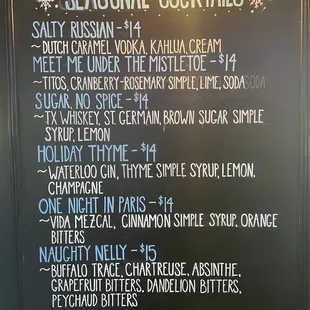 SEASONAL COCKTAILS
SALTY RUSSIAN - $14
~DUTCH CARAMEL VODKA, KAHLUA, CREAM
MEET ME UNDER THE MISTLETOE - $14
~TITOS, CRANBERRY-ROSEMARY SIMPLE, LIME, SODA
SUGAR, NO SPICE - $14
~TX WHISKEY, ST. GERMAIN, BROWN SUGAR SIMPLE
SYRUP, LEMON
HOLIDAY THYME - $14
~WATERLOO GIN, THYME SIMPLE SYRUP, LEMON,
CHAMPAGNE
ONE NIGHT IN PARIS - $14
~VIDA MEZCAL, CINNAMON SIMPLE SYRUP, ORANGE
BITTERS
NAUGHTY NELLY - $15
~BUFFALO TRACE, CHARTREUSE, ABSINTHE,
GRAPEFRUIT BITTERS, DANDELION BITTERS,
PEYCHAUD BITTERS